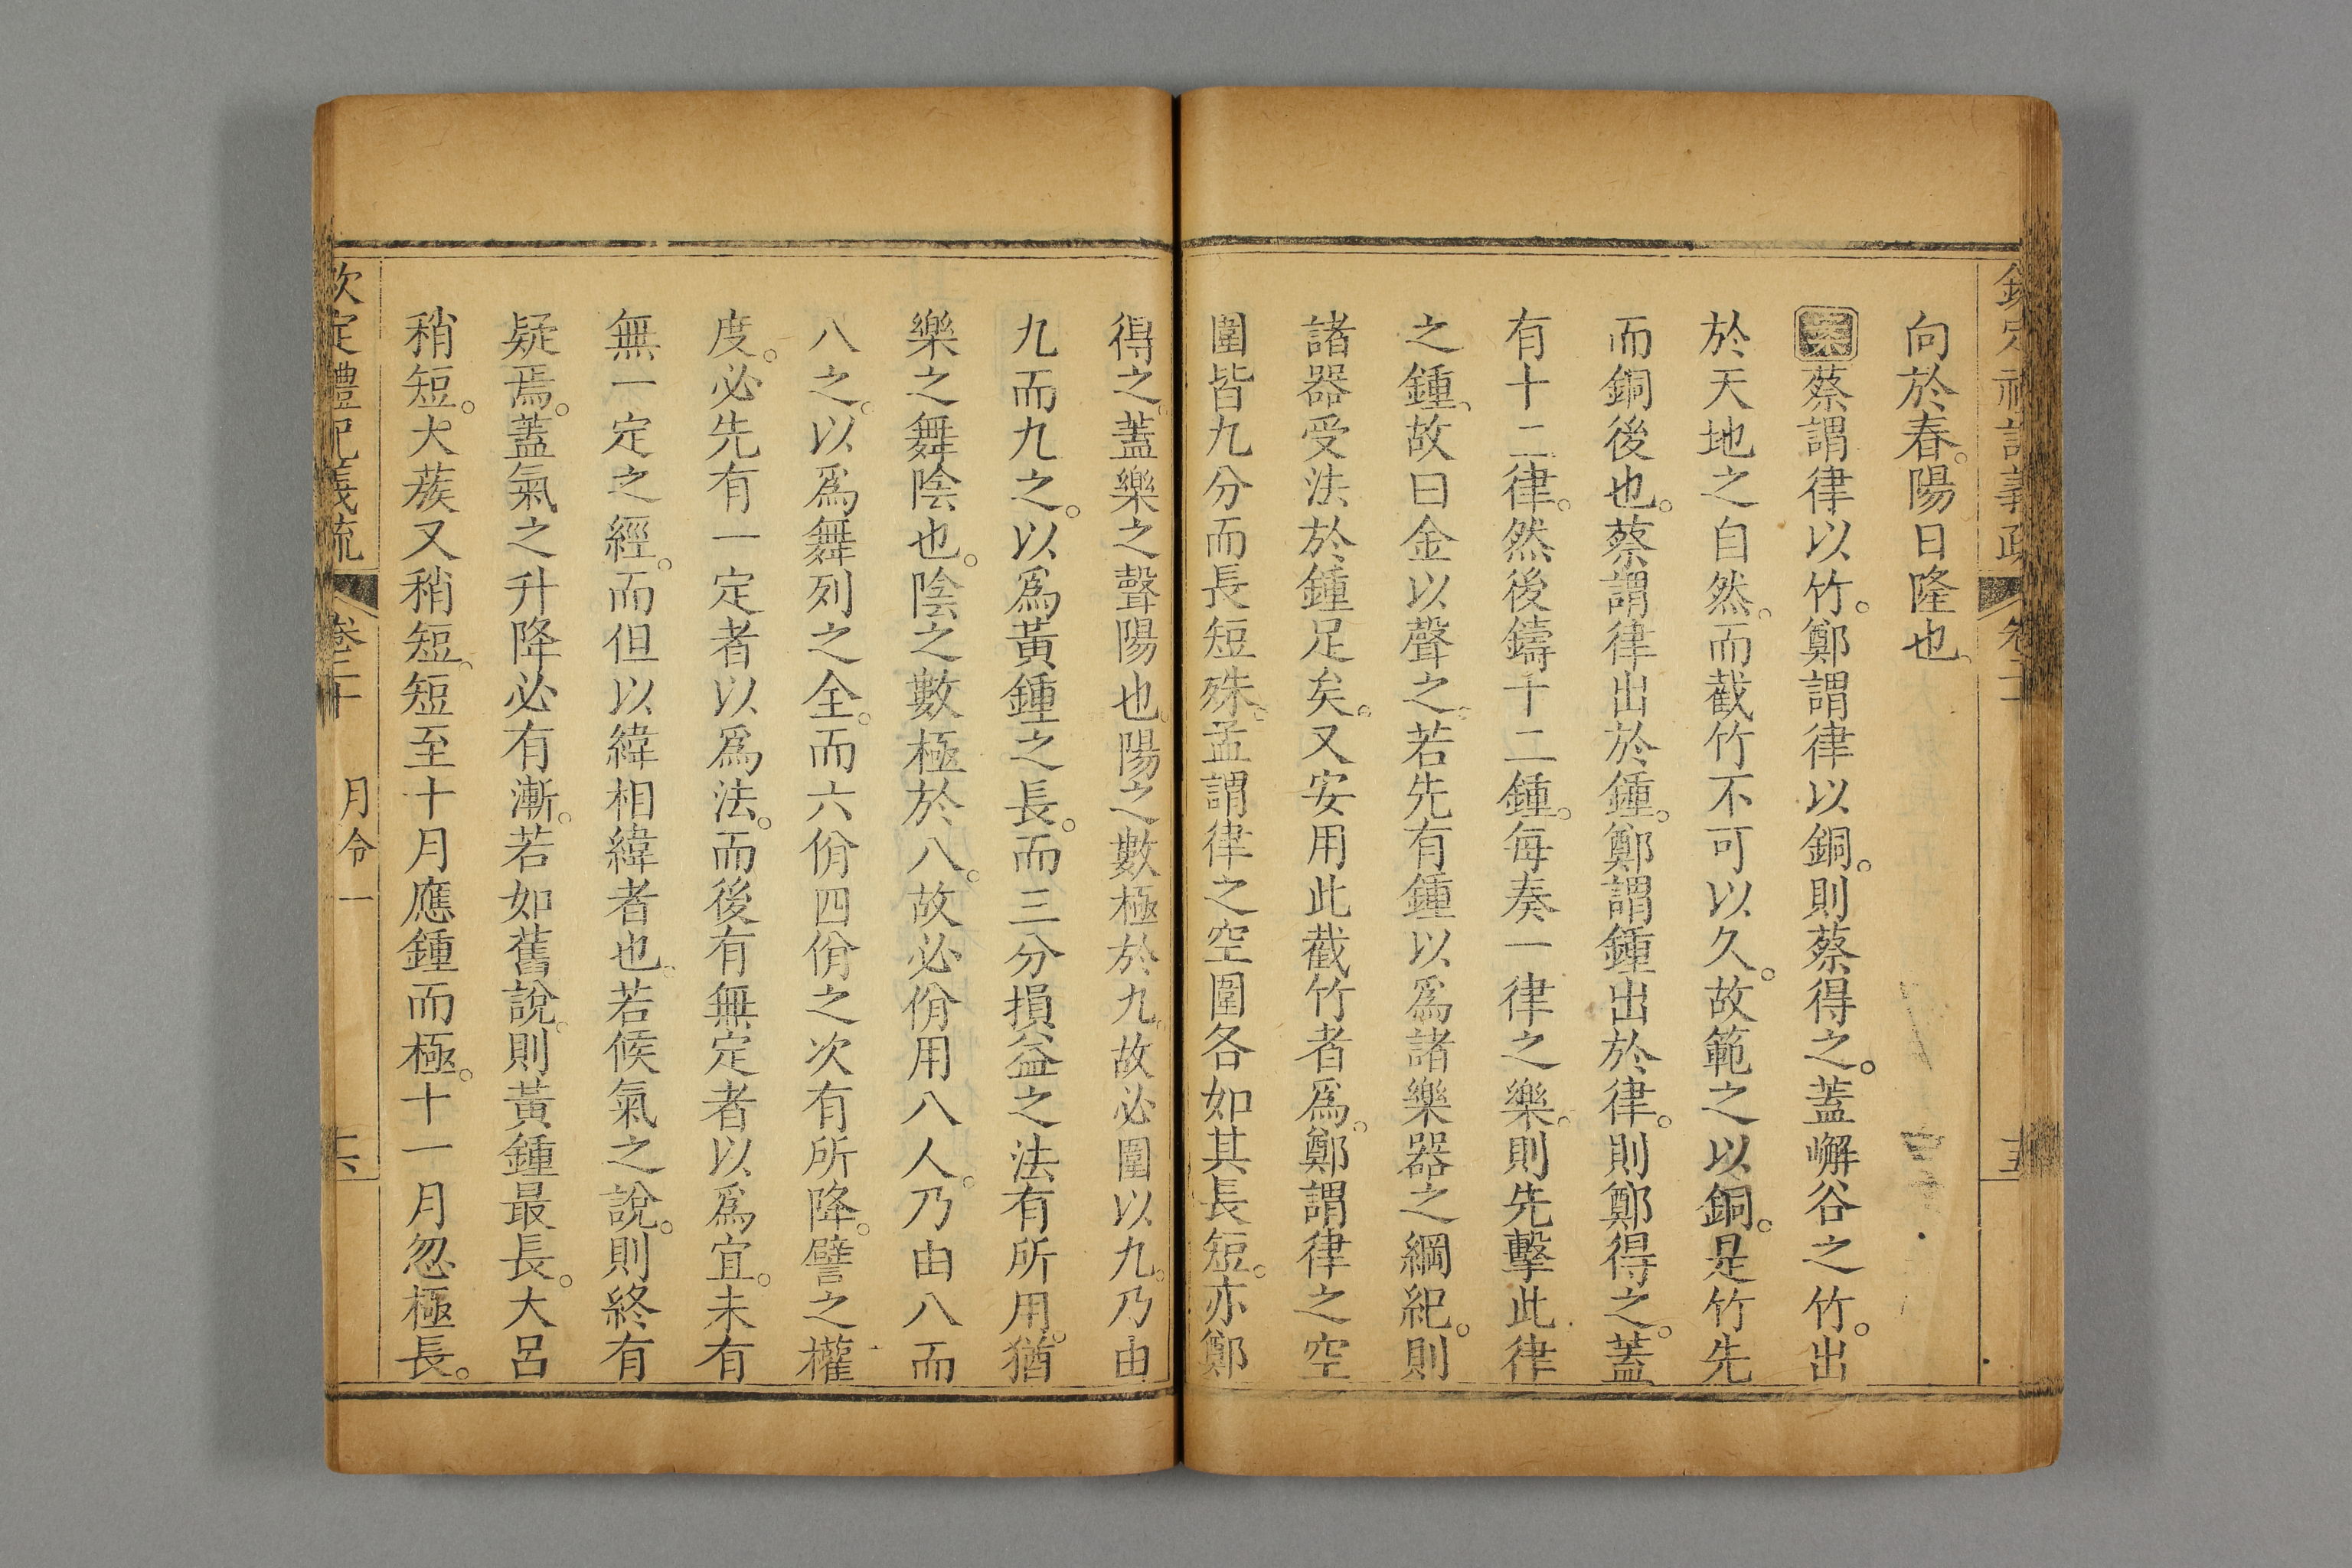 欽定禮記義疏 卷二十 十五
向於春。陽日隆也。
案蔡謂律以竹。鄭謂律以銅。則蔡得之。蓋嶰谷之竹。出
於天地之自然。而截竹不可以久。故範之以銅。是竹先
而銅後也。蔡謂律出於鍾。鄭謂鍾出於律。則鄭得之。蓋
有十二律。然後鑄十二鍾。每奏一律之樂。則先擊此律
之鍾。故曰金以聲之。若先有鍾以爲諸樂器之綱紀。則
諸器受法於鍾足矣。又安用此截竹者爲。鄭謂律之空
圍皆九分而長短殊。孟謂律之空圍各如其長短。亦鄭
得之。蓋樂之聲陽也。陽之數極於九。故必圍以九。乃由
九而九之。以爲黃鍾之長。而三分損益之法有所用。猶
樂之舞陰也。陰之數極於八。故必佾用八人。乃由八而
八之。以爲舞列之全。而六佾四佾之次有所降。譬之權
度。必先有一定者以爲法。而後有無定者以爲宜。未有
無一定之經。而但以緯相緯者也。若候氣之說。則終有
疑焉。蓋氣之升降必有漸。若如舊說。則黃鍾最長。大呂
稍短。大蔟又稍短。短至十月應鍾而極。十一月忽極長。
欽定禮記義疏 卷二十 月令一 十六